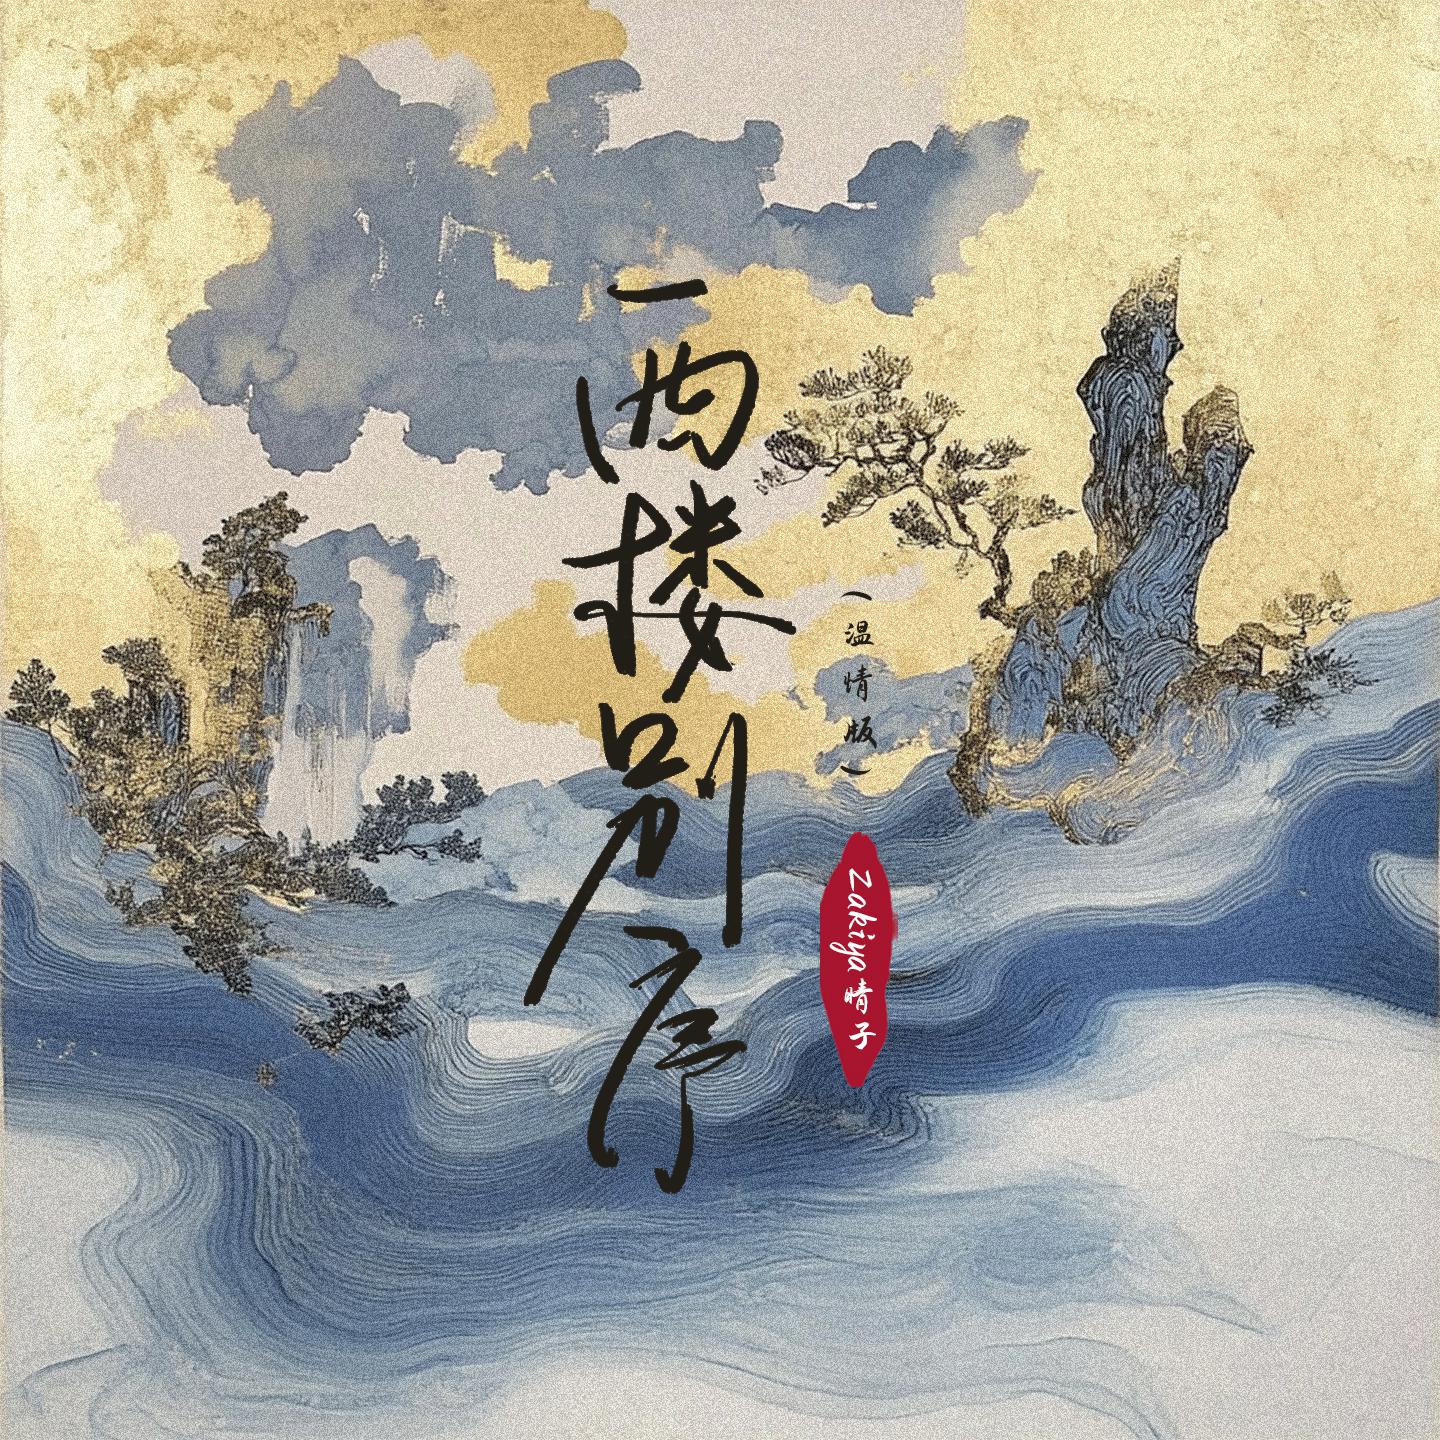 西楼别序
（温情版）
Zakiya晴子